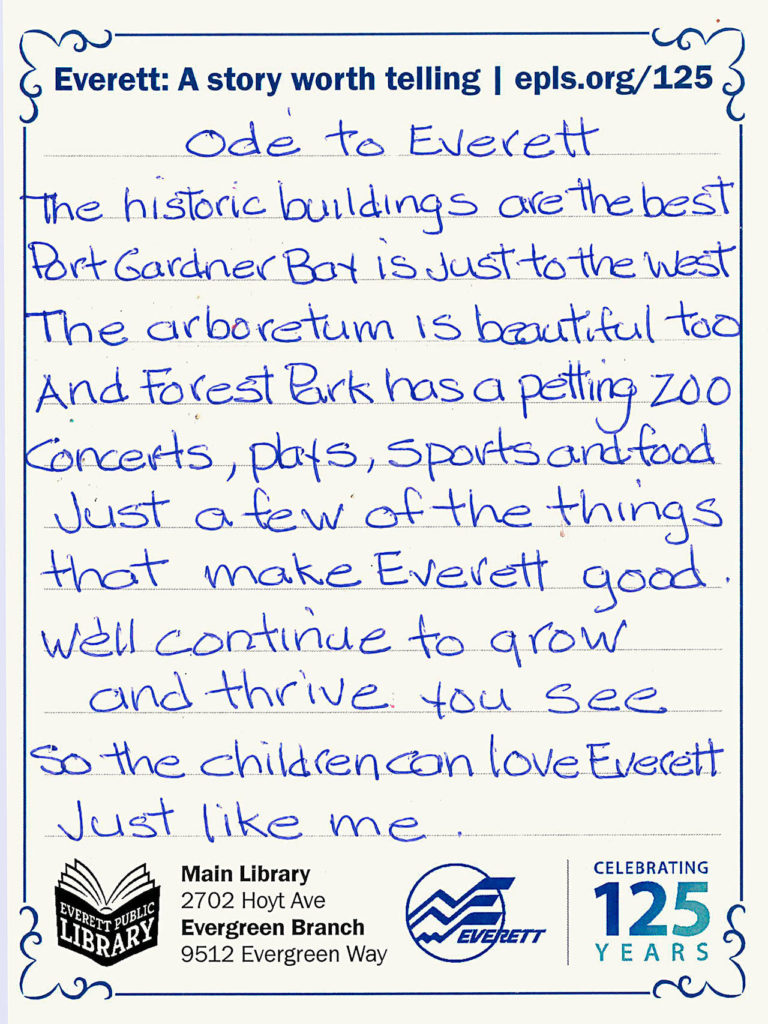 Everett: A story worth telling | epls.org/125
Ode to Everett
The historic buildings are the best
Port Gardner Bay is just to the west
The arboretum is beautiful too
And Forest Park has a petting zoo
Concerts, plays, sports and food
Just a few of the things
that make Everett good.
We'll continue to grow
and thrive you see
So the children can love Everett
Just like me.
EVERETT PUBLIC
LIBRARY
Main Library
2702 Hoyt Ave
Evergreen Branch
9512 Evergreen Way
EVERETT
CELEBRATING
125
YEARS